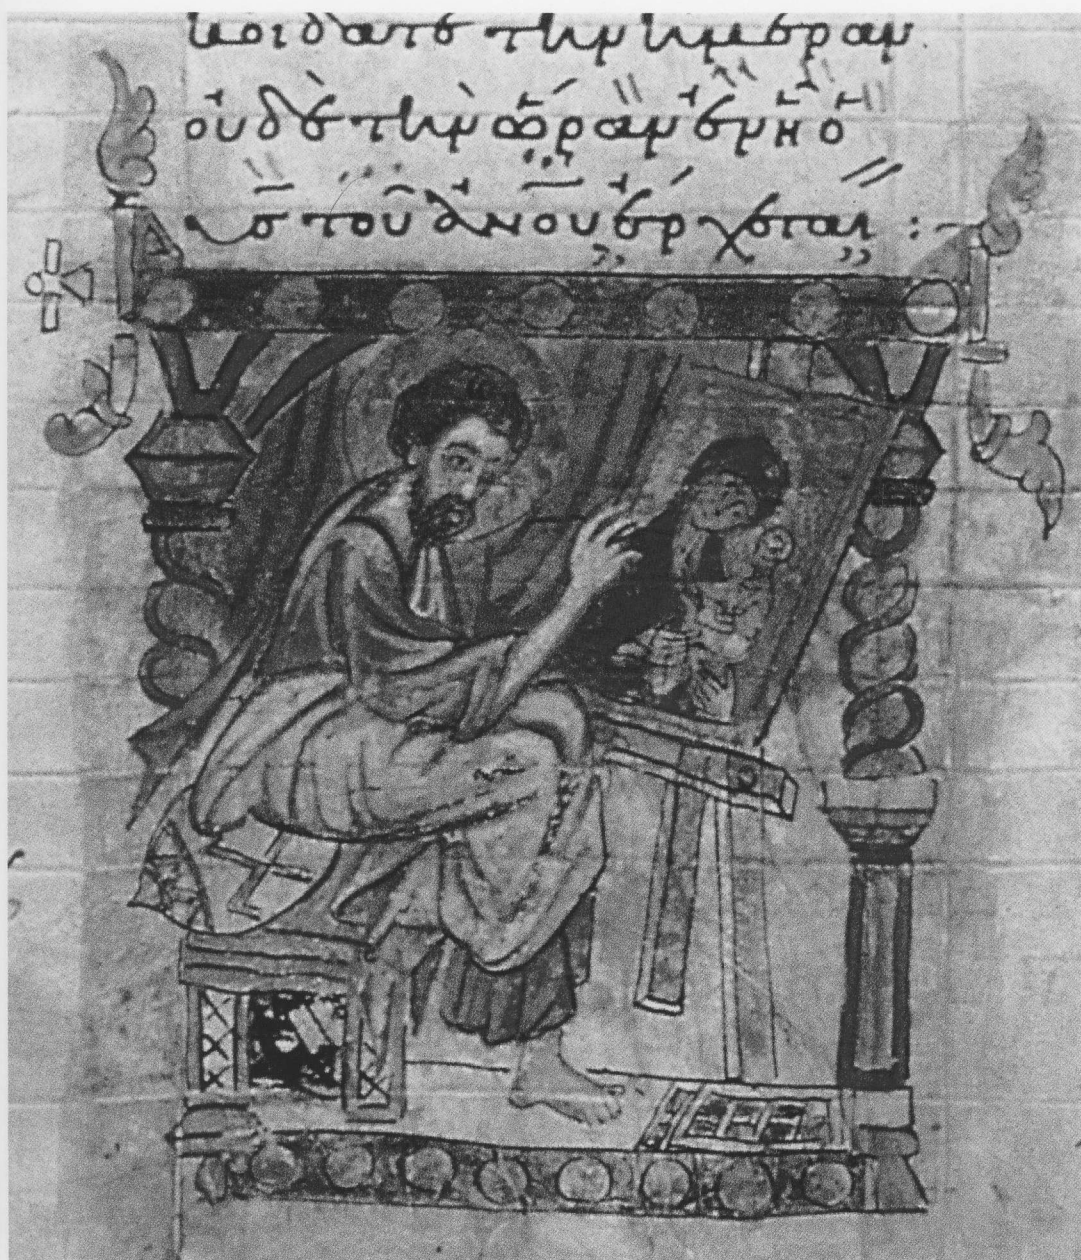 κοιδατε την ημεραν
οὐδὲ τὴν ὥραν ἐν ἧ ὁ
υ̅ς̅ τοῦ ἀ̅ν̅ο̅υ̅ ἔρχεται :-